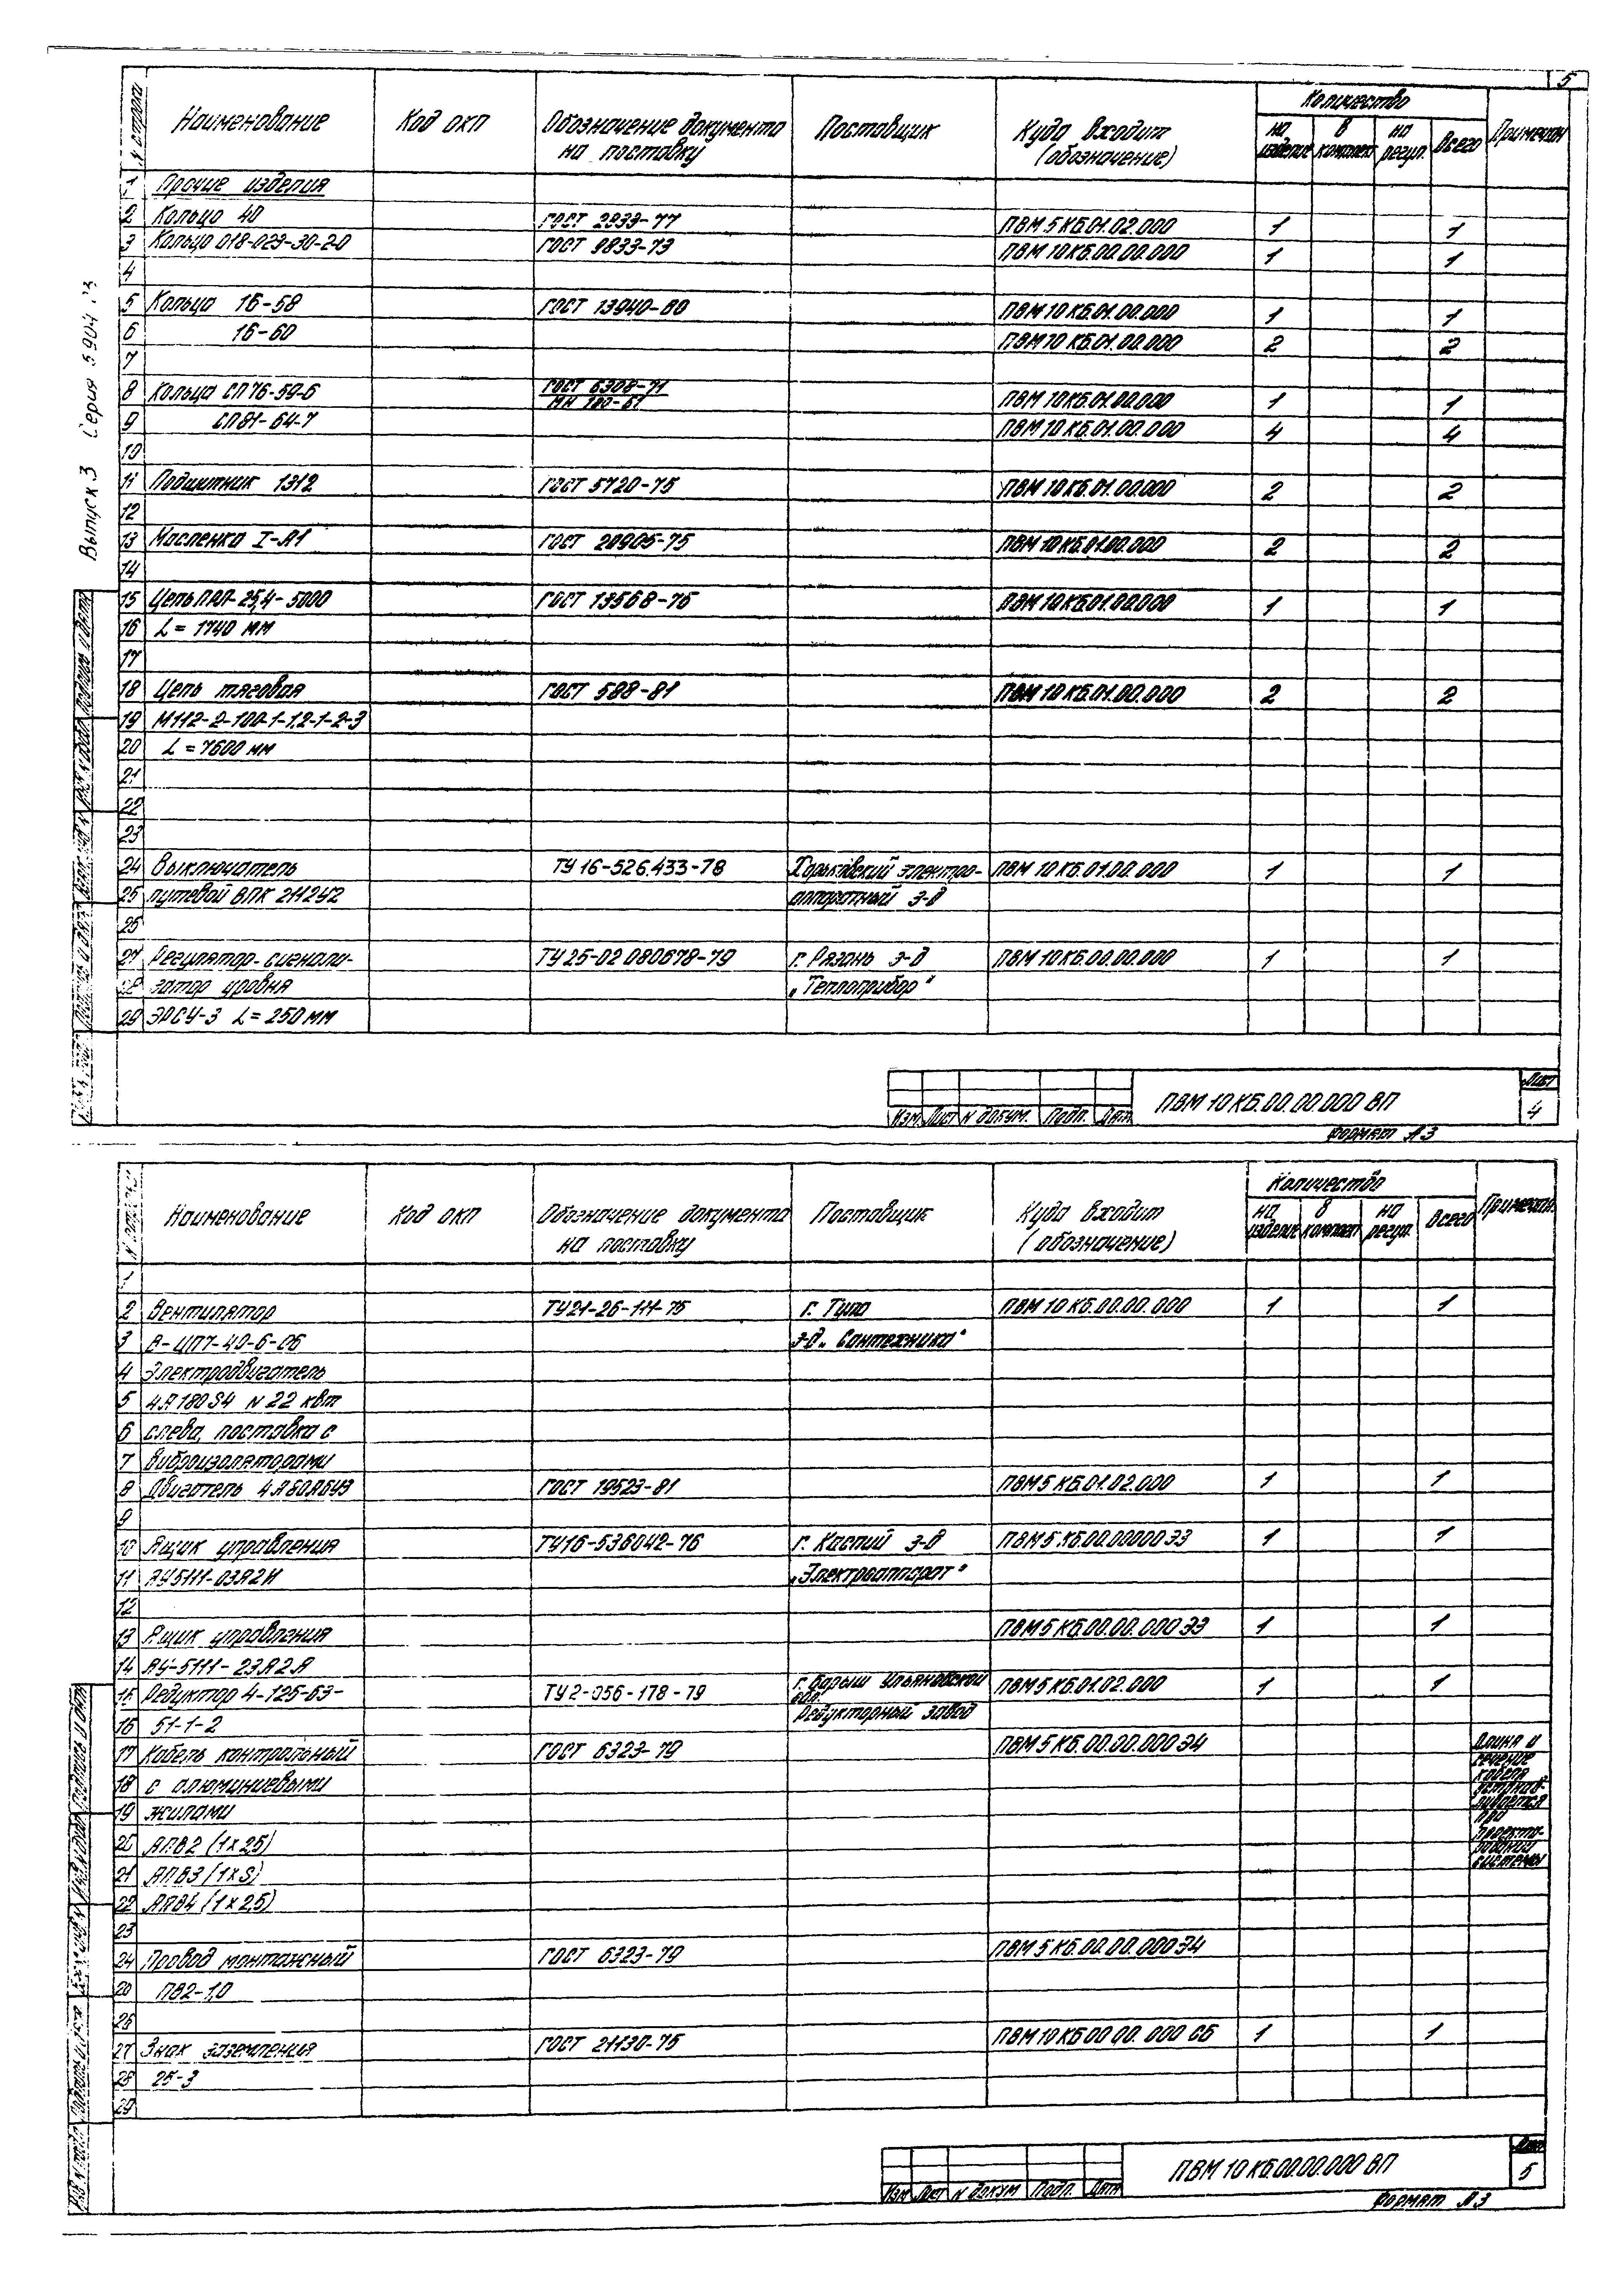 5
Выпуск 3 Серия 5.904
N строки Наименование Код окп Обозначение документа на поставку Поставщик Куда входит (обозначение) Количество на изделие в комплект на регул. Всего Примечан
1 Прочие изделия
2 Кольцо 40 ГОСТ 2833-77 ПВМ 5 КБ.01.02.000 1 1
3 Кольцо 018-023-30-2-0 ГОСТ 9833-73 ПВМ 10 КБ.00.00.000 1 1
4
5 Кольца 1Б-58 ГОСТ 13940-80 ПВМ 10 КБ.01.00.000 1 1
6 1Б-60 ПВМ 10 КБ.01.00.000 2 2
7
8 Кольца СП 76-59-6 ГОСТ 6308-71 МН 180-61 ПВМ 10 КБ.01.00.000 1 1
9 СП81-64-7 ПВМ 10 КБ.01.00.000 4 4
10
11 Подшипник 1312 ГОСТ 5720-75 ПВМ 10 КБ.01.00.000 2 2
12
13 Масленка I-А1 ГОСТ 20905-75 ПВМ 10 КБ.01.00.000 2 2
14
15 Цепь ПРЛ-25,4-5000 ГОСТ 13568-75 ПВМ 10 КБ.01.00.000 1 1
16 L = 1740 мм
17
18 Цепь тяговая ГОСТ 588-81 ПВМ 10 КБ.01.00.000 2 2
19 М112-2-100-1-1,2-1-2-3
20 L = 7600 мм
21
22
23
24 Выключатель ТУ 16-526.433-78 Харьковский электро- ПВМ 10 КБ.01.00.000 1 1
25 путевой ВПК 2112У2 аппаратный з-д
26
27 Регулятор-сигнали- ТУ 25-02 080678-79 г. Рязань з-д ПВМ 10 КБ.00.00.000 1 1
28 затор уровня „Теплоприбор"
29 ЭРСУ-3 L = 250 мм
Изм. Лист N докум. Подп. Дата ПВМ 10 КБ.00.00.000 ВП Лист 4
Формат А3
N строки Наименование Код окп Обозначение документа на поставку Поставщик Куда входит (обозначение) Количество на изделие в комплект на регул. Всего Примечан.
1
2 Вентилятор ТУ21-26-111-75 г. Тула ПВМ 10 КБ.00.00.000 1 1
3 В-ЦП7-40-6-06 з-д „Сантехника"
4 Электродвигатель
5 4А180S4 N 22 квт
6 слева, поставка с
7 виброизоляторами
8 Двигатель 4А80А6У3 ГОСТ 19523-81 ПВМ 5 КБ.01.02.000 1 1
9
10 Ящик управления ТУ16-536042-76 г. Каспий з-д ПВМ 5 КБ.00.00000 Э3 1 1
11 ЯУ5111-03А2И „Электроаппарат"
12
13 Ящик управления ПВМ 5 КБ.00.00.000 Э3 1 1
14 ЯУ-5111-23А2А
15 Редуктор Ч-125-63- ТУ2-056-178-79 г. Барыш Ульяновской обл. ПВМ 5 КБ.01.02.000 1 1
16 51-1-2 Редукторный завод
17 Кабель контрольный ГОСТ 6323-79 ПВМ 5 КБ.00.00.000 Э4 Длина и
18 с алюминиевыми сечение кабеля
19 жилами устанав-ливается при
20 АПВ2 (1х2,5) проекти-
21 АПВ3 (1хS) ровании системы
22 АПВ4 (1х2,5)
23
24 Провод монтажный ГОСТ 6323-79 ПВМ 5 КБ.00.00.000 Э4
25 ПВ2-1,0
26
27 Знак заземления ГОСТ 21130-75 ПВМ 10 КБ.00.00.000 СБ 1 1
28 25-3
29
Изм Лист N докум Подп. Дата ПВМ 10 КБ.00.00.000 ВП Лист 5
Формат А3